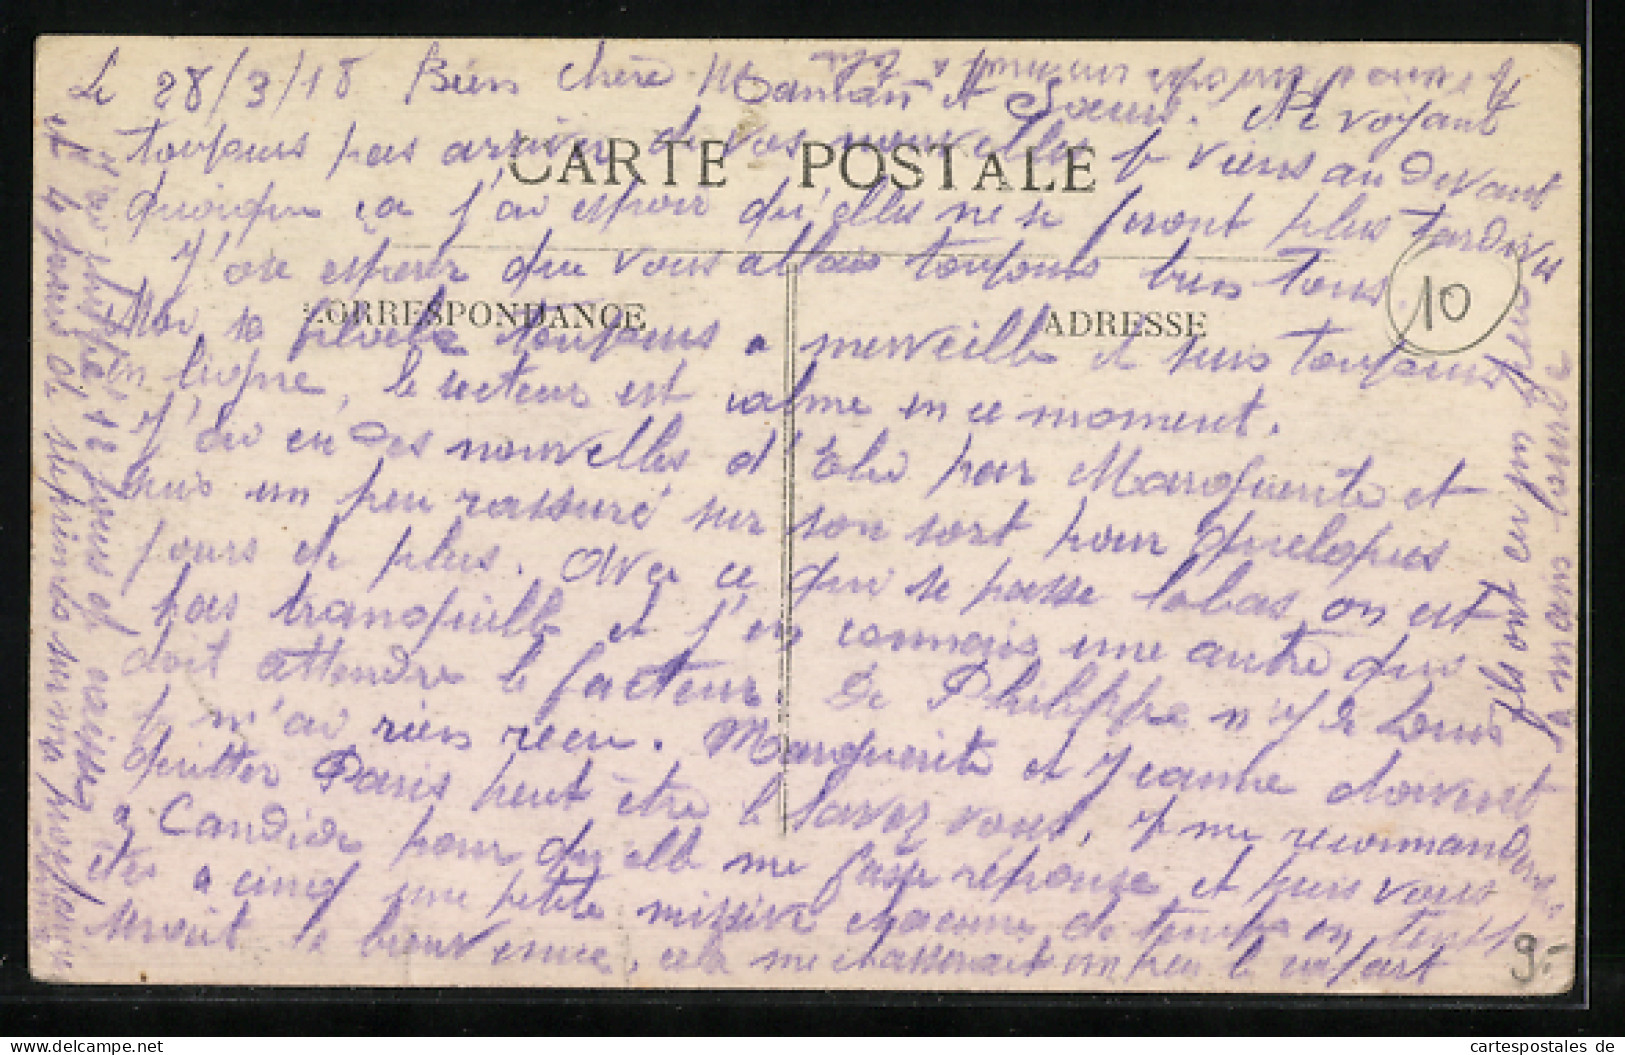 Le 28/3/18 Bien chère Maman et Soeurs. Ne voyant
toujours pas arriver de vos nouvelles je viens au devant
CARTE POSTALE
quoique ça j'ai espoir qu'elles ne se feront plus tardives
J'ose esperer que vous allais toujours bien tous.
CORRESPONDANCE
ADRESSE
10
Moi se toujours a merveille et suis toujours
en ligne, le secteur est calme en ce moment.
J'ai eu des nouvelles d'Elie par Marguerite et
suis un peu rassuré sur son sort pour quelques
jours de plus. Avec ce qui se passe labas on est
pas tranquille et j'en connais une autre qui
doit attendre le facteur. De Philippe ni de Louis
je n'ai rien recu. Marguerite et Jeanne doivent
quitter Paris peut être le savez vous. Je me recommanderais
a Candide pour qu'elle me fasse réponse et puis vous
êtes a cinq une petite missive chacune de temps en temps
serait la bienvenue, cela me chasserait un peu le cafard
ils ont eu un
a mauvais
et 4 jours de
9.-
cartespostales de